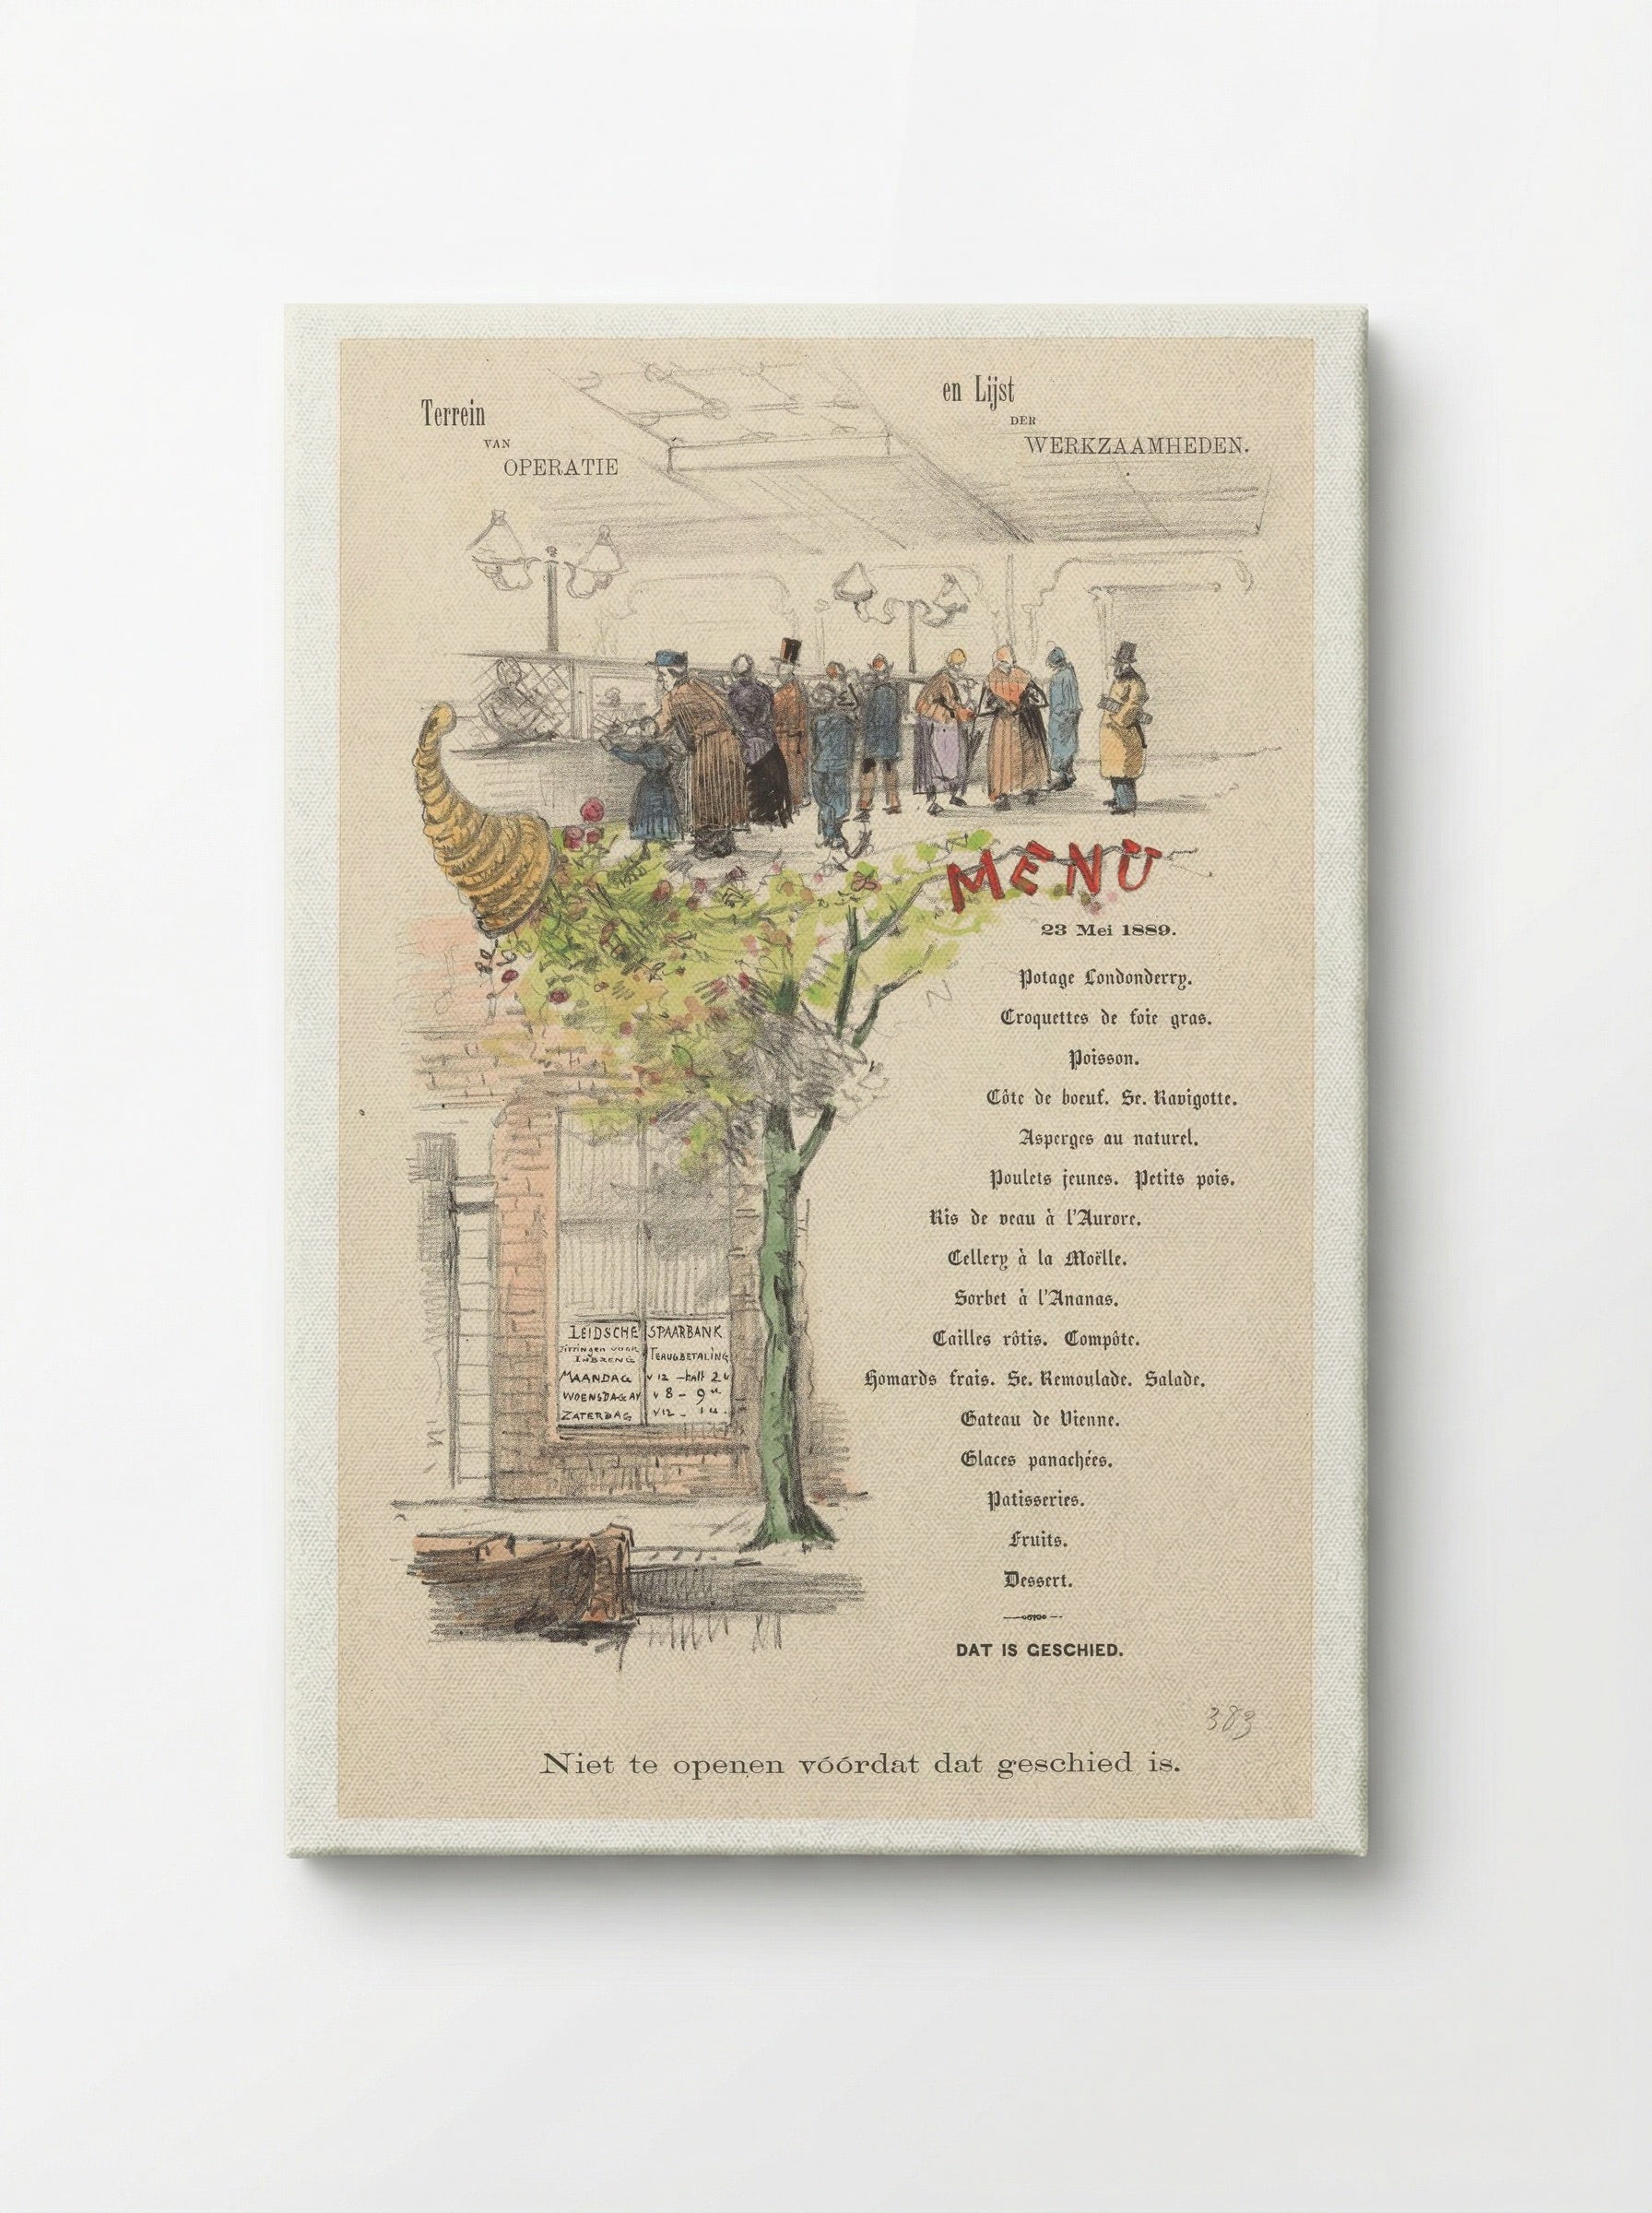 Terrein
VAN
OPERATIE
en Lijst
DER
WERKZAAMHEDEN.
MENU
23 Mei 1889.
Potage Londonderry.
Croquettes de foie gras.
Poisson.
Côte de boeuf. Sc. Ravigotte.
Asperges au naturel.
Poulets jeunes. Petits pois.
Ris de veau à l'Aurore.
Cellery à la Moëlle.
Sorbet à l'Ananas.
Cailles rôtis. Compôte.
Homards frais. Sc. Remoulade. Salade.
Gateau de Vienne.
Glaces panachées.
Patisseries.
Fruits.
Dessert.
DAT IS GESCHIED.
LEIDSCHE SPAARBANK
INBRENG TERUGBETALING
MAANDAG v 12 - half 2 u
WOENSDAG v 8 - 9 u
ZATERDAG v 12 - 1 u.
383
Niet te openen vóórdat dat geschied is.